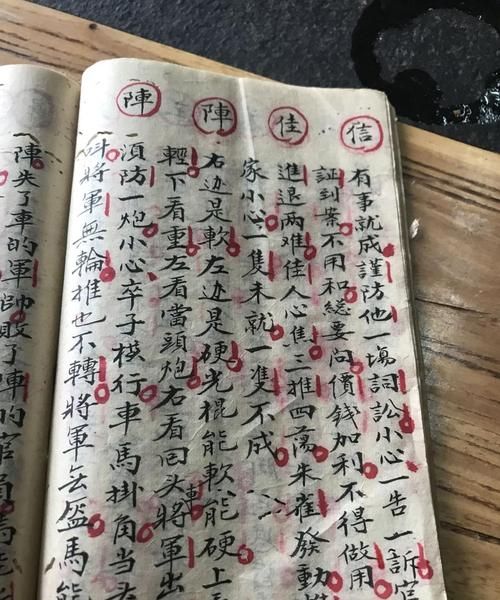 信
有事就成謹防他一塲詞訟小心一告一訴官
証到案不用和総要问價錢加利不得做用
佳
進退两难佳人心焦三推四蕩朱雀發動
家小心一隻未就一隻不成
陣
右边是軟左边是硬光棍能軟能硬上
輕下看重左看當頭炮右看回头將軍出
陣
須防一炮小心卒子横行車馬掛角当
將軍無輪推也不轉將軍無盔馬能
陣失了車的軍帥敗了陣的官